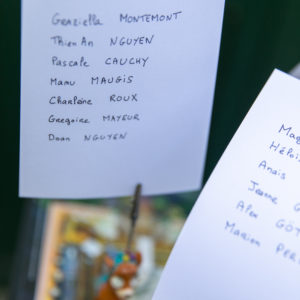 Graziella MONTEMONT
Thien An NGUYEN
Pascale CAUCHY
Manu MAUGIS
Charlène ROUX
Gregoire MAYEUR
Doan NGUYEN
Mag
Hélois
Anais
Jeanne G
Alex GÖT
Marion PER